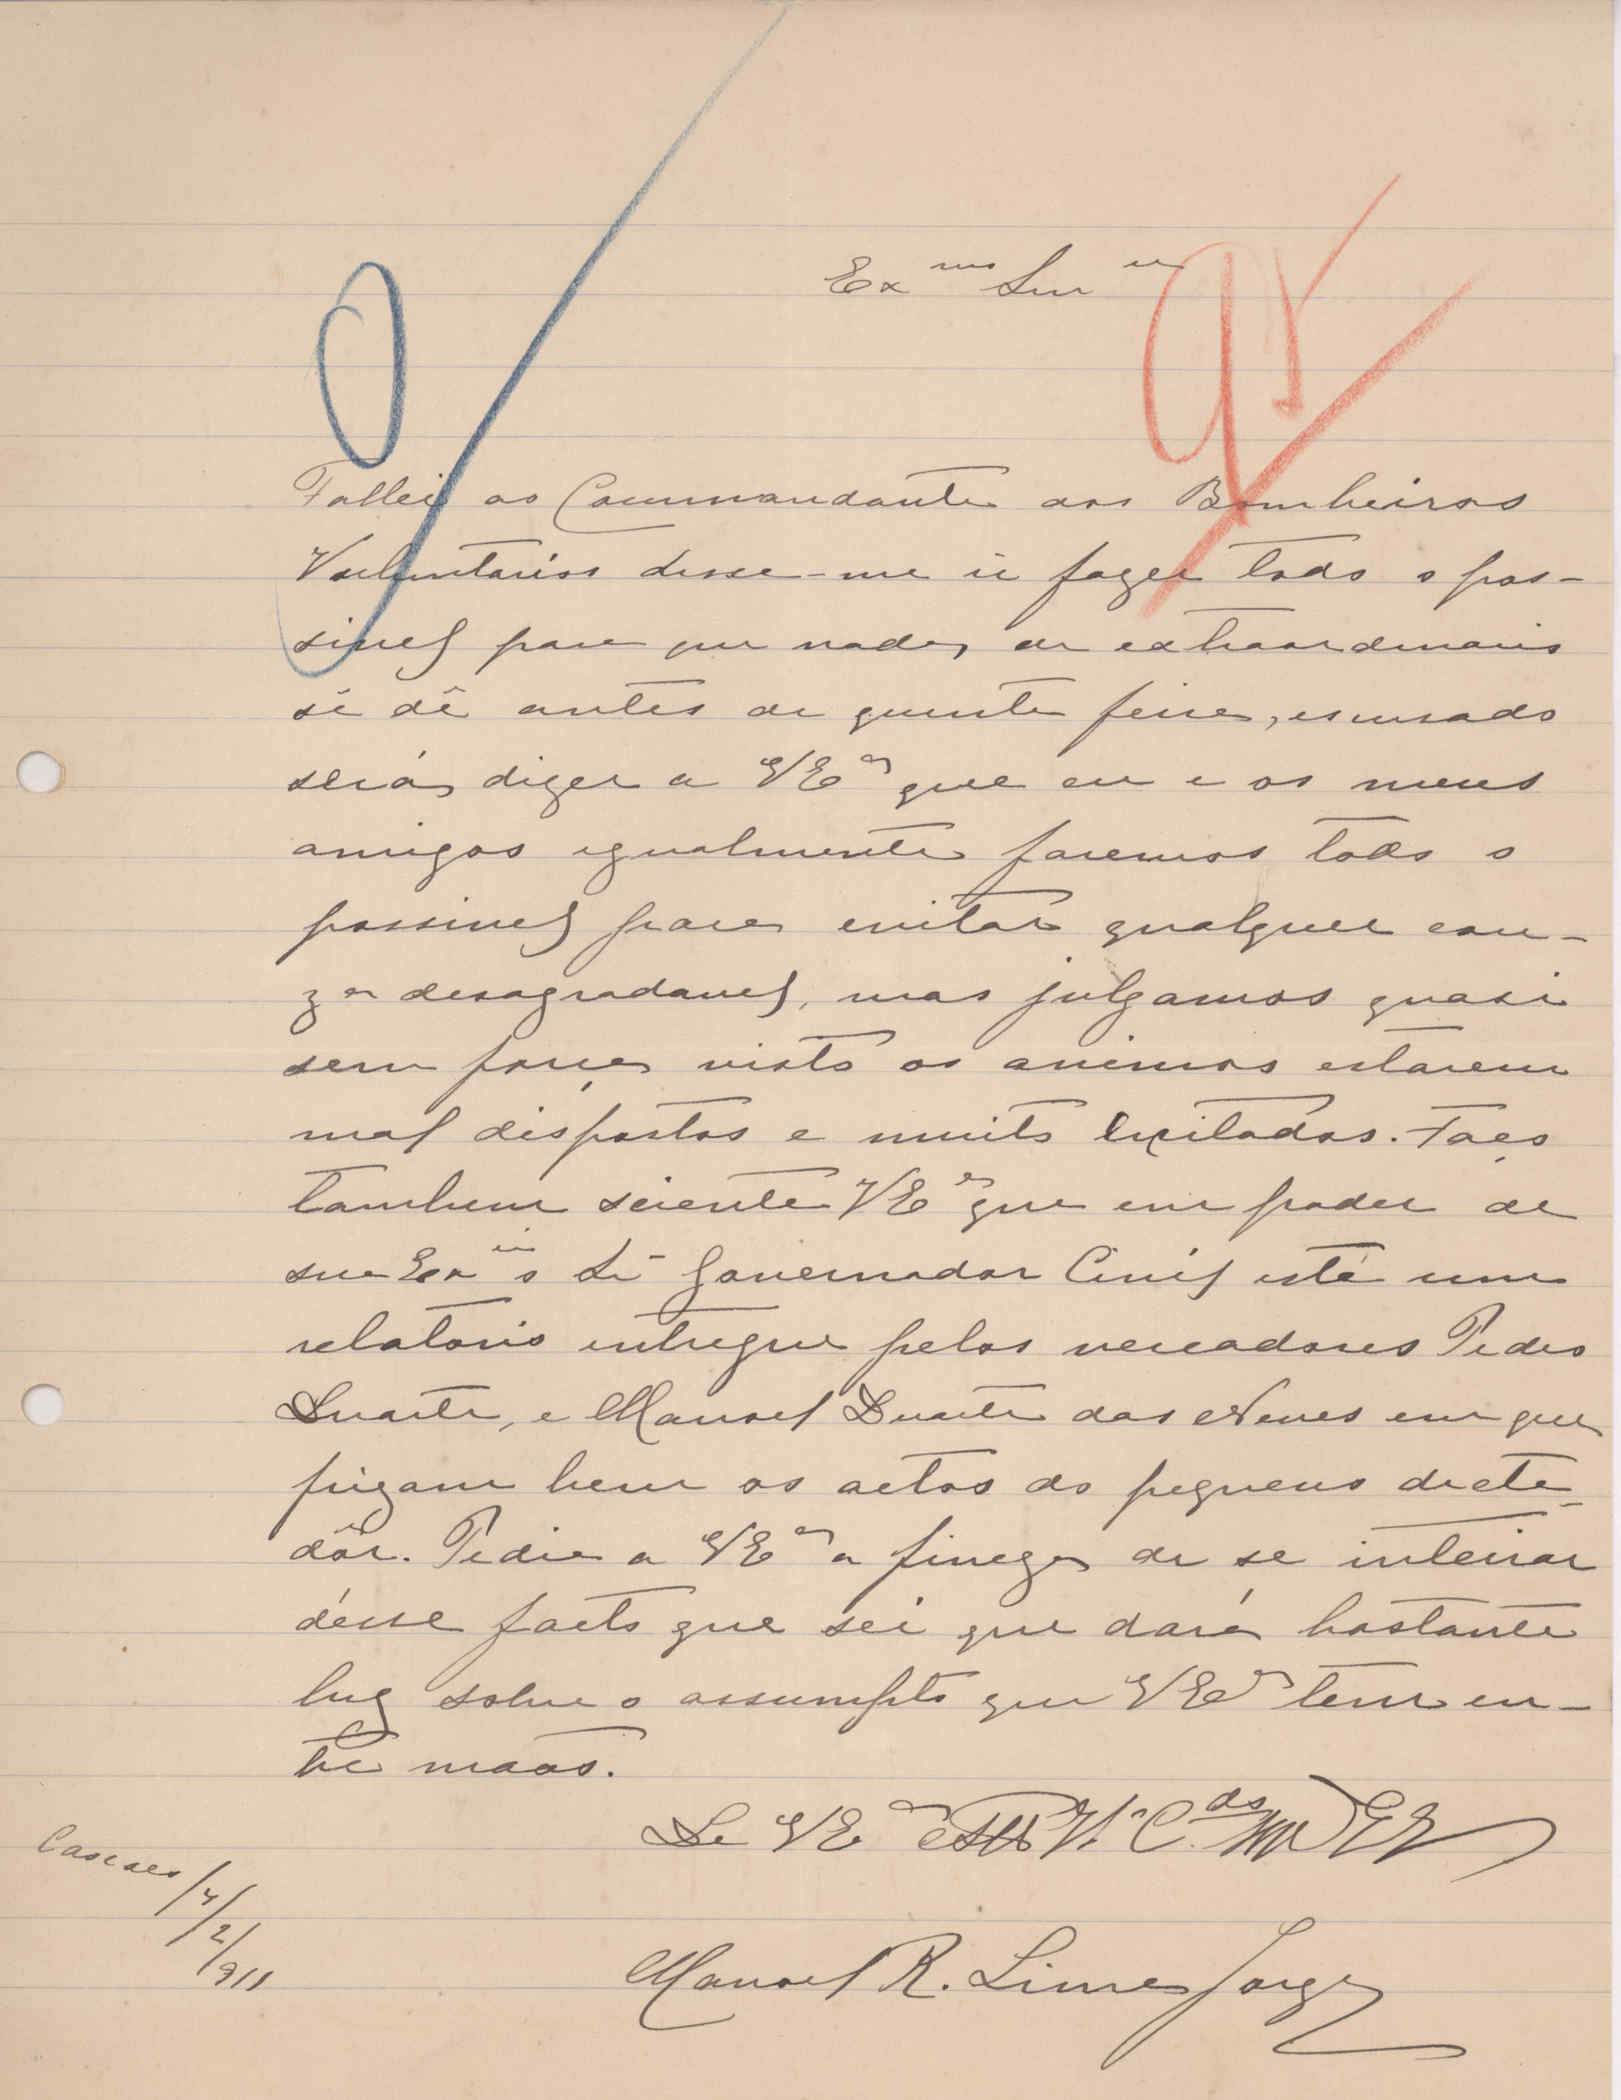 Ex.mo Snr
Fallei ao Commandante dos Bombeiros
Voluntarios disse-me ir fazer todo o pos-
sivel para que nada de extraordinario
sê dê antes de quinta feira, escusado
será dizer a VEª que eu e os meus
amigos egualmente faremos todo o
possivel para evitar qualquer cou-
za desagradavel, mas julgamos quasi
sem força visto os animos estarem
mal dispostos e muito excitados. Faço
tambem sciente VEª que em poder de
sua Exª o Sr Governador Civil está um
relatorio entregue pelos vereadores Pedro
Duarte, e Manoel Duarte das Neves em que
frizam bem os actos do pequeno dicta-
dôr. Pedia a VEª a fineza de se inteirar
désse facto que sei que dará bastante
luz sobre o assumpto que VEª tem en-
tre maos.
De VEª
Manoel R. Lima Jorge
Cascaes
/7/2/911